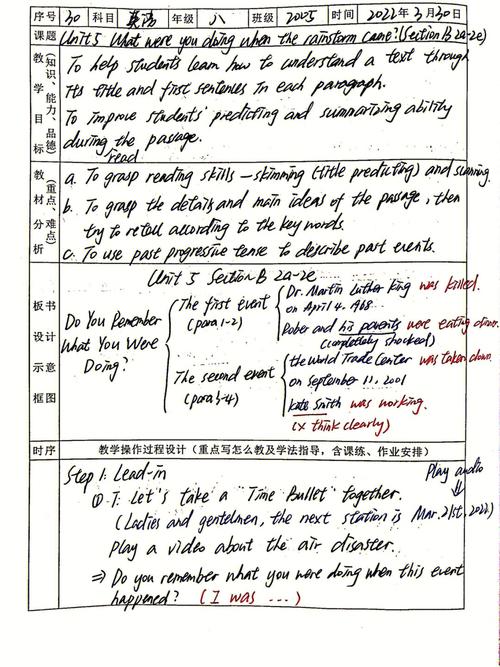 序号 30 科目 英语 年级 八 班级 2005 时间 2022年3月30日
课题 Unit 5 What were you doing when the rainstorm came? (Section B 2a-2e)
教学目标 (知识、能力、品德)
To help students learn how to understand a text through
its title and first sentences in each paragraph.
To improve students' predicting and summarizing ability
during the passage.
read
教材分析 (重点、难点)
a. To grasp reading skills - skimming (title predicting) and scanning.
b. To grasp the details and main ideas of the passage, then
try to retell according to the key words.
c. To use past progressive tense to describe past events.
板书设计示意框图
Unit 5 Section B 2a-2e
Do You Remember What You Were Doing?
The first event (para 1-2)
Dr. Martin Luther King was killed.
on April 4. 1968.
Rober and his parents were eating dinner.
(completely shocked)
The second event (para 3-4)
the World Trade Center was taken down
on September 11. 2001
Kate Smith was working.
(x think clearly)
时序 教学操作过程设计 (重点写怎么教及学法指导,含课练、作业安排)
Step 1: Lead-in
Play audio
① T: Let's take a "Time Bullet" together.
(Ladies and gentelmen, the next station is Mar. 21st. 2022)
Play a video about the air disaster.
⇒ Do you remember what you were doing when this event
happened? (I was ...)